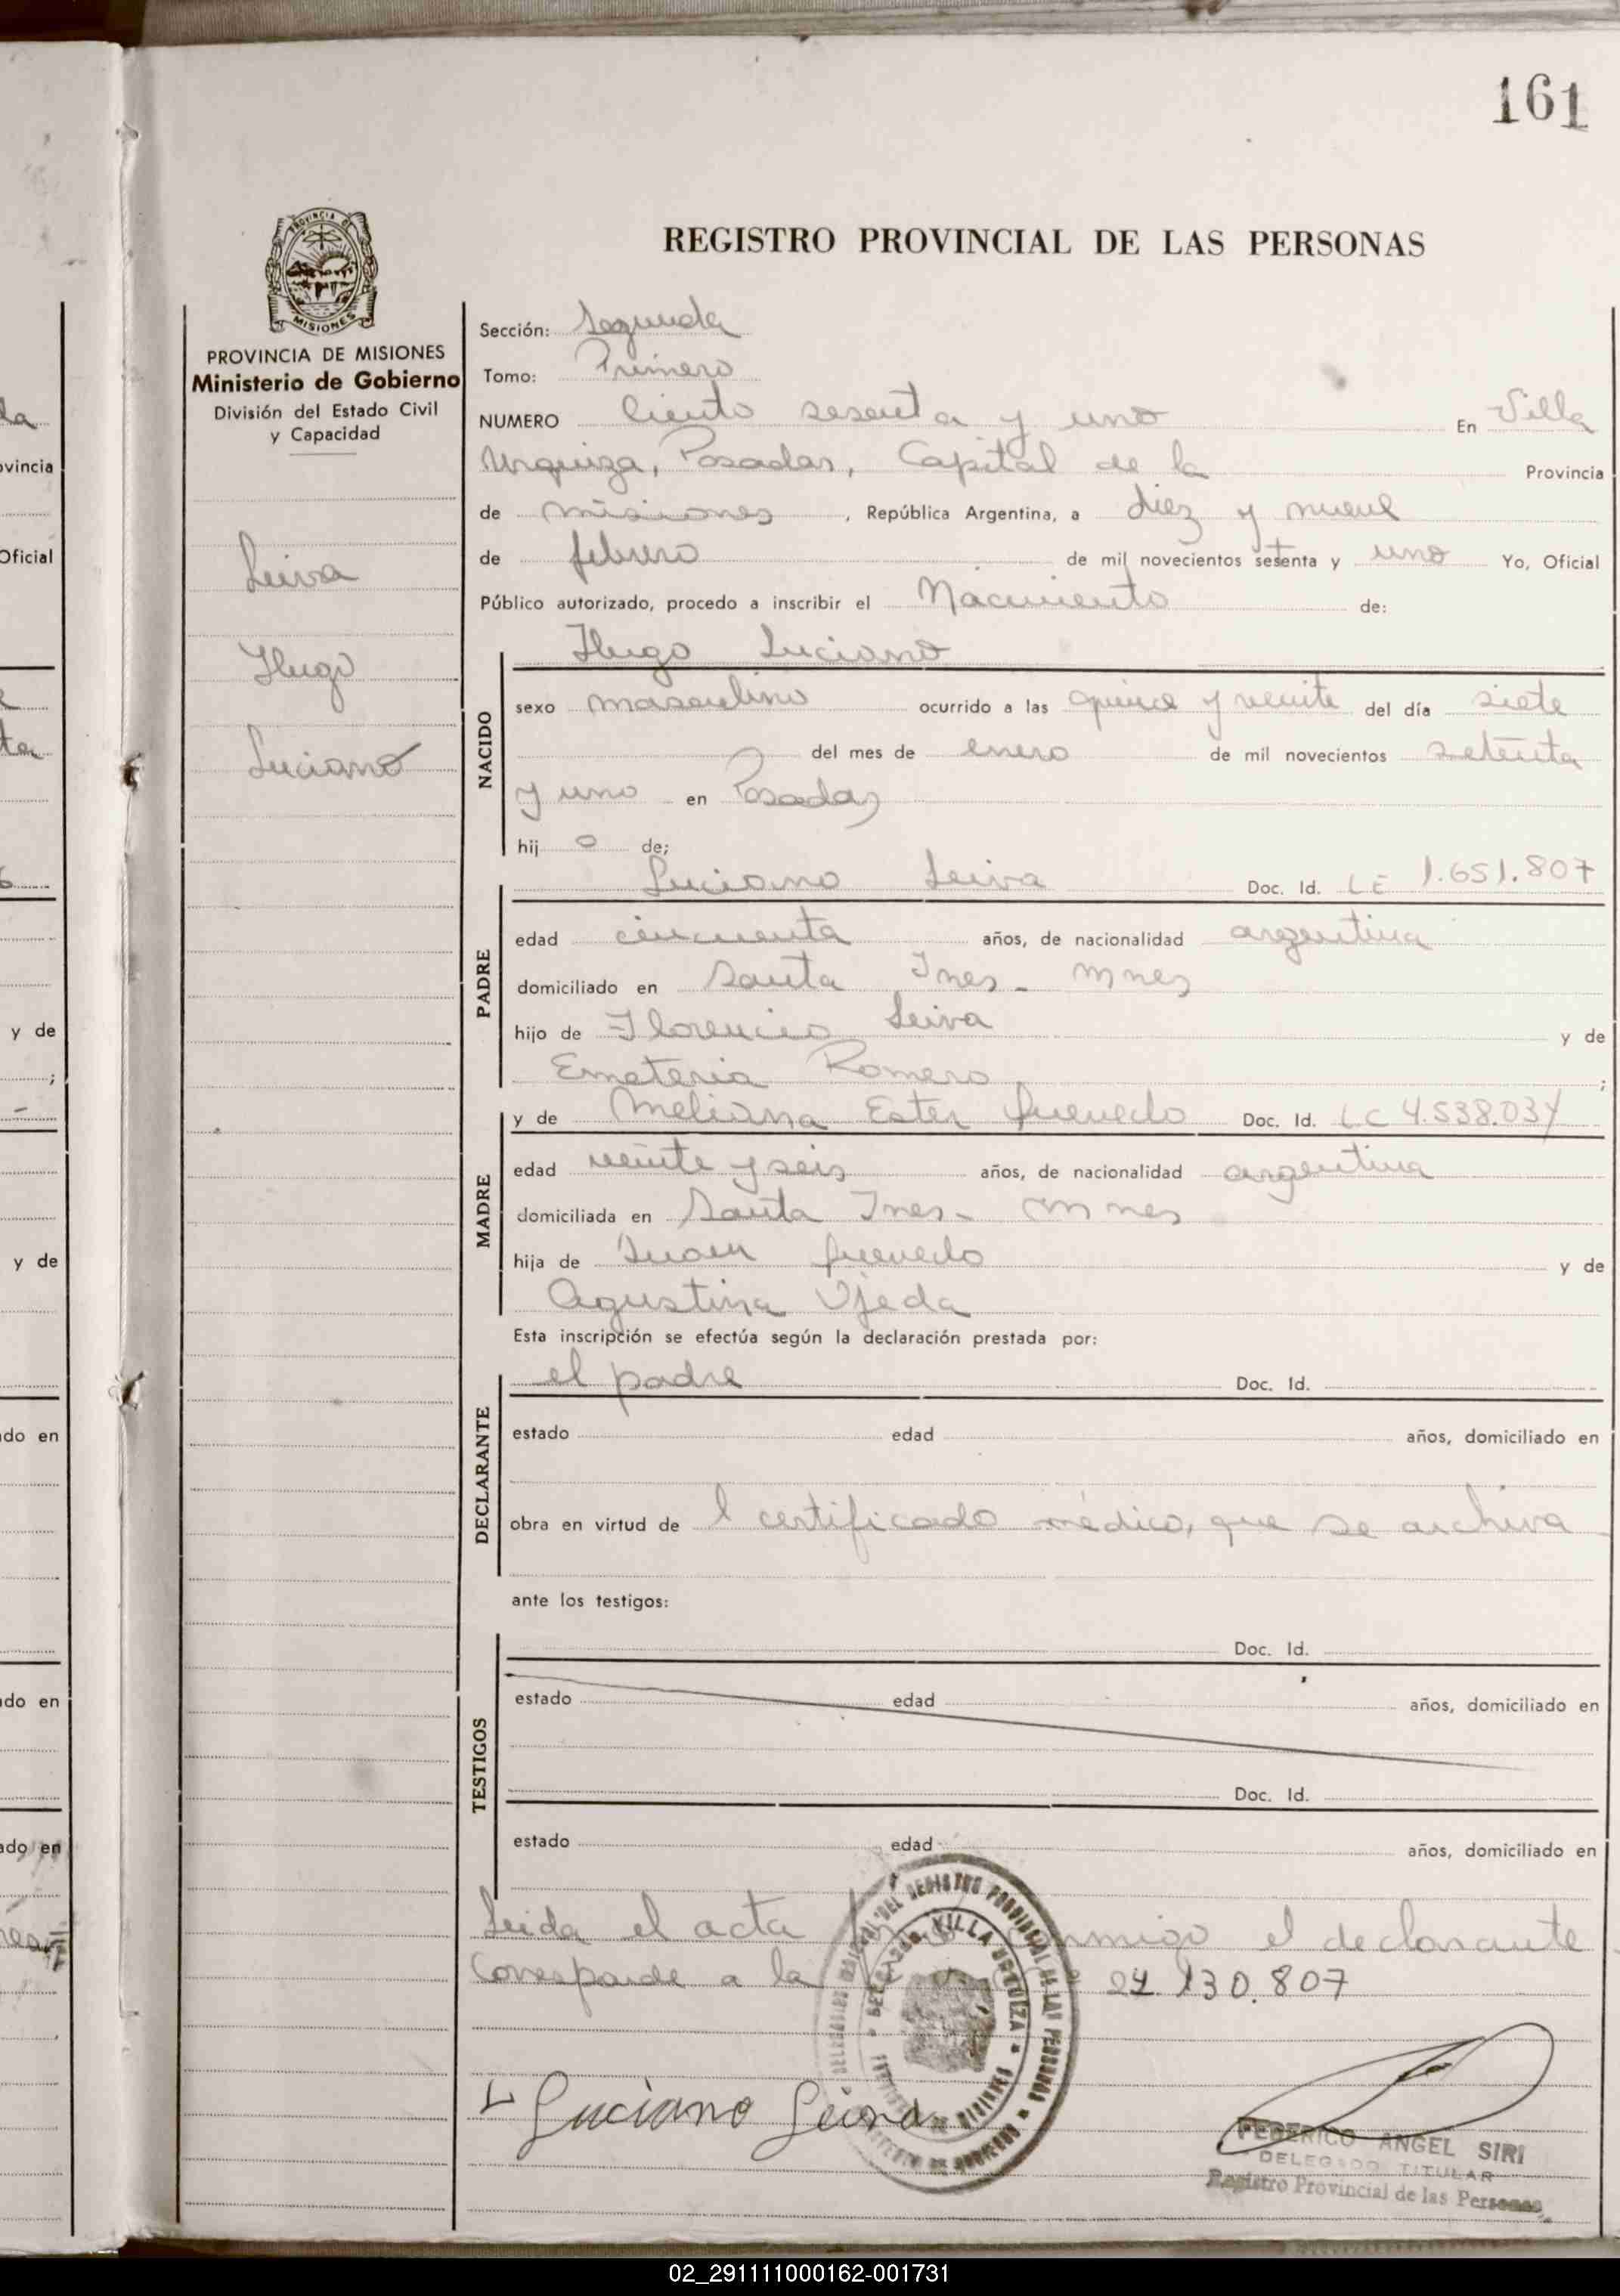 161
PROVINCIA DE
MISIONES
REGISTRO PROVINCIAL DE LAS PERSONAS
PROVINCIA DE MISIONES
Ministerio de Gobierno
División del Estado Civil
y Capacidad
Leiva
Hugo
Luciano
Sección: Segunda
Tomo: Primero
NUMERO Ciento sesenta y uno En Villa
Urquiza, Posadas, Capital de la Provincia
de misiones, República Argentina, a diez y nueve
de febrero de mil novecientos setenta y uno Yo, Oficial
Público autorizado, procedo a inscribir el Nacimiento de:
Hugo Luciano
NACIDO
sexo masculino ocurrido a las quince y veinte del día siete
del mes de enero de mil novecientos setenta
y uno en Posadas
hij o de;
Luciano Leiva Doc. Id. LE 1.651.807
PADRE
edad cincuenta años, de nacionalidad argentina
domiciliado en Santa Ines - Mnes
hijo de Florencio Leiva y de
Emeteria Romero ;
y de Meliana Ester Quevedo Doc. Id. LC 4.538.034
MADRE
edad veinte y seis años, de nacionalidad argentina
domiciliada en Santa Ines - Mnes
hija de Juan Quevedo y de
Agustina Ojeda
Esta inscripción se efectúa según la declaración prestada por:
el padre Doc. Id.
DECLARANTE
estado edad años, domiciliado en
obra en virtud de l certificado médico, que se archiva
ante los testigos:
Doc. Id.
TESTIGOS
estado edad años, domiciliado en
Doc. Id.
estado edad años, domiciliado en
Leida el acta conmigo el declarante.
Corresponde a la 24.130.807
Luciano Leiva
FEDERICO ANGEL SIRI
DELEGADO TITULAR
Registro Provincial de las Personas
la
ovincia
Oficial
y de
;
y de
do en
do en
ado en
02_291111000162-001731